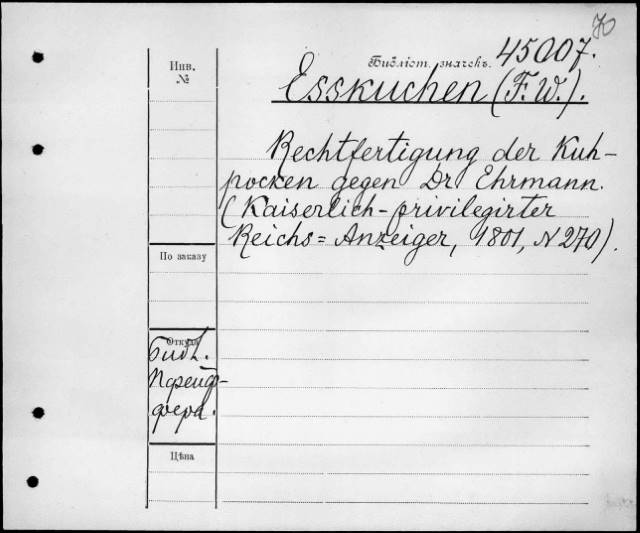 70
Инв. №
Библіот. значекъ. 45007.
Esskuchen (F. W.).
Rechtfertigung der Kuh-
pocken gegen Dr Ehrmann.
(Kaiserlich-privilegirter
Reichs=Anzeiger, 1801, N 270).
По заказу
Откуда
Библ.
Пфейф-
фера.
Цѣна